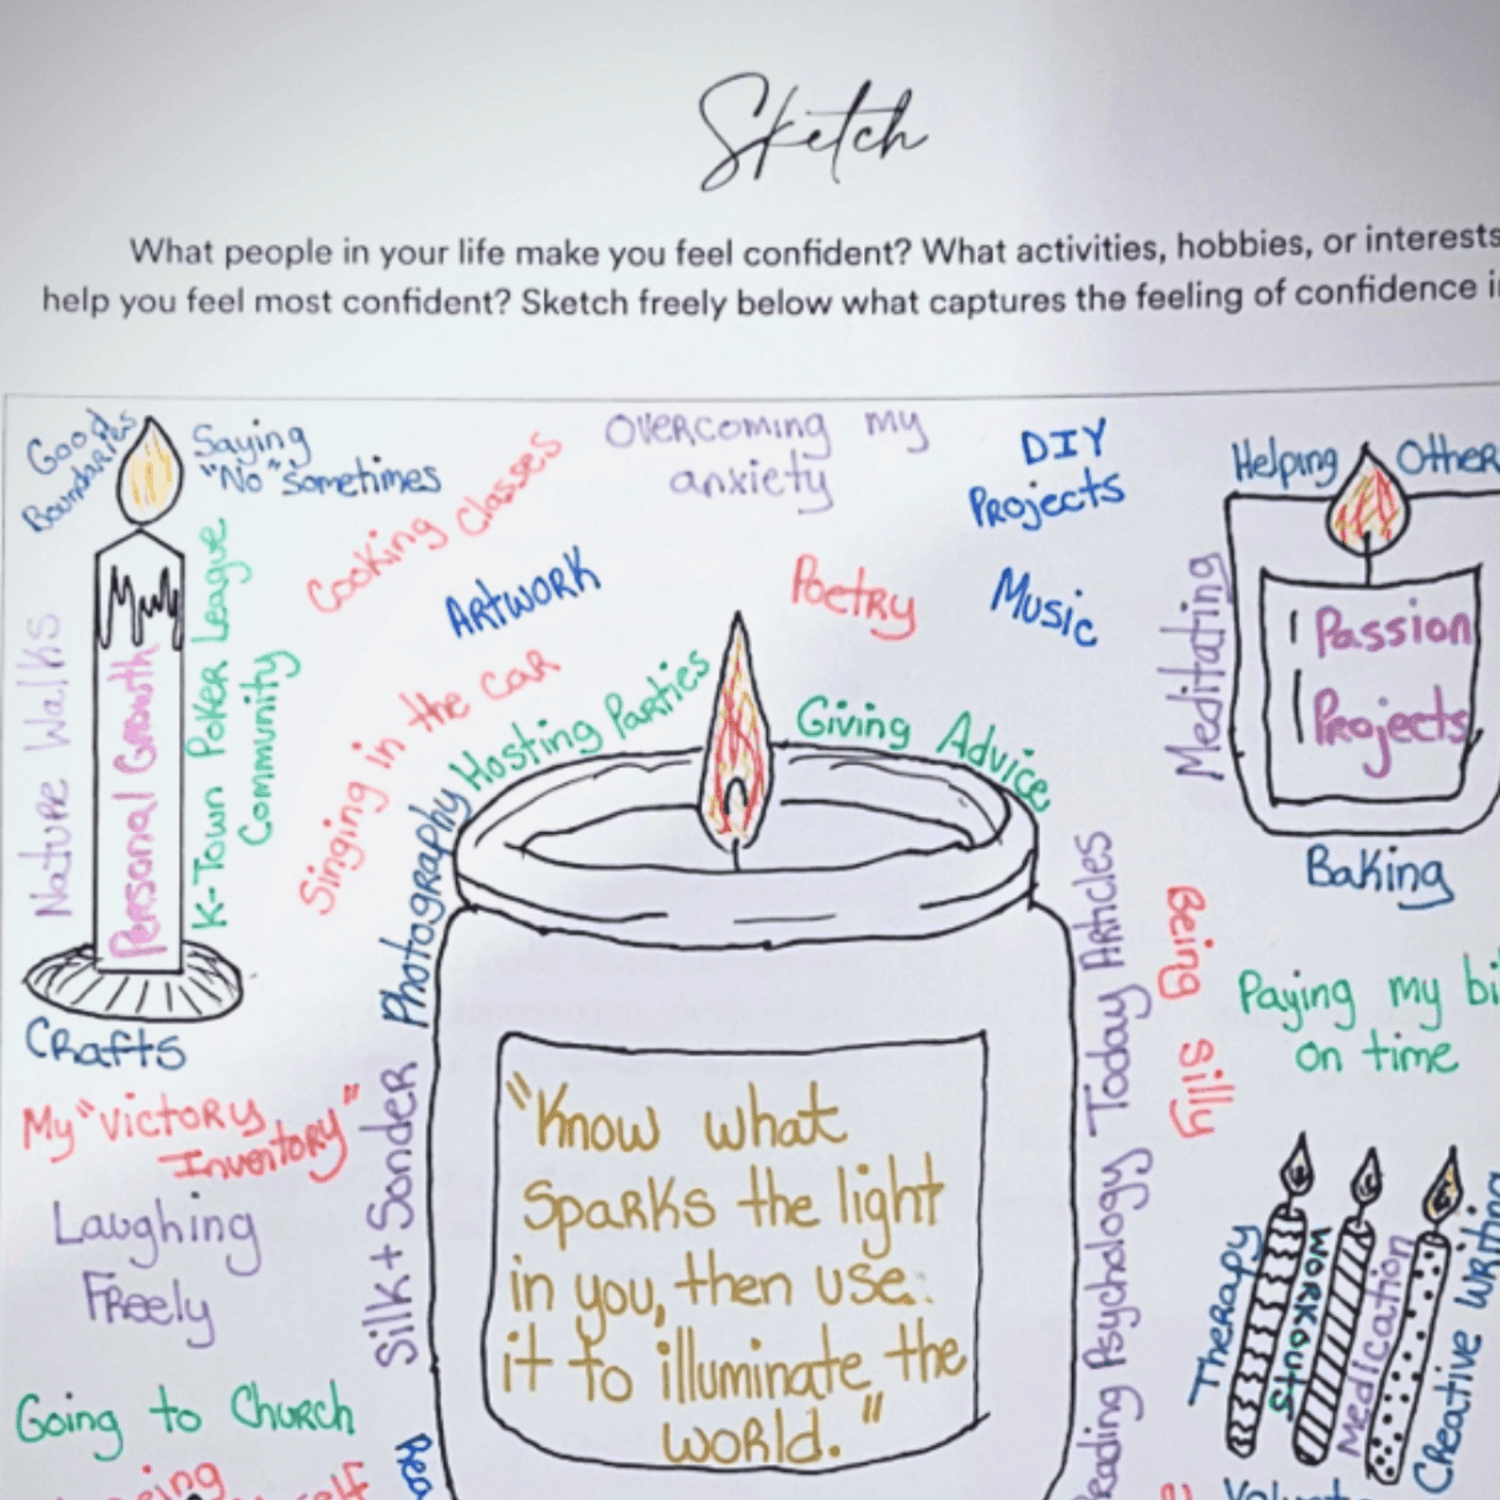 Sketch
What people in your life make you feel confident? What activities, hobbies, or interests
help you feel most confident? Sketch freely below what captures the feeling of confidence
Good
Boundaries
Saying
"No" Sometimes
Cooking Classes
Overcoming my
anxiety
DIY
Projects
Helping
Artwork
Poetry
Music
Meditating
Passion
Projects
Nature Walks
Personal Growth
K-Town Poker League
Community
Singing in the car
Photography
Hosting Parties
Giving Advice
Baking
Crafts
Being Silly
Paying my
on time
My "Victory
Inventory"
Laughing
Freely
Silk + Sonder
"Know what
sparks the light
in you, then use
it to illuminate the
world."
Psychology Today Articles
Therapy
Workouts
Medication
Creative Writing
Going to Church